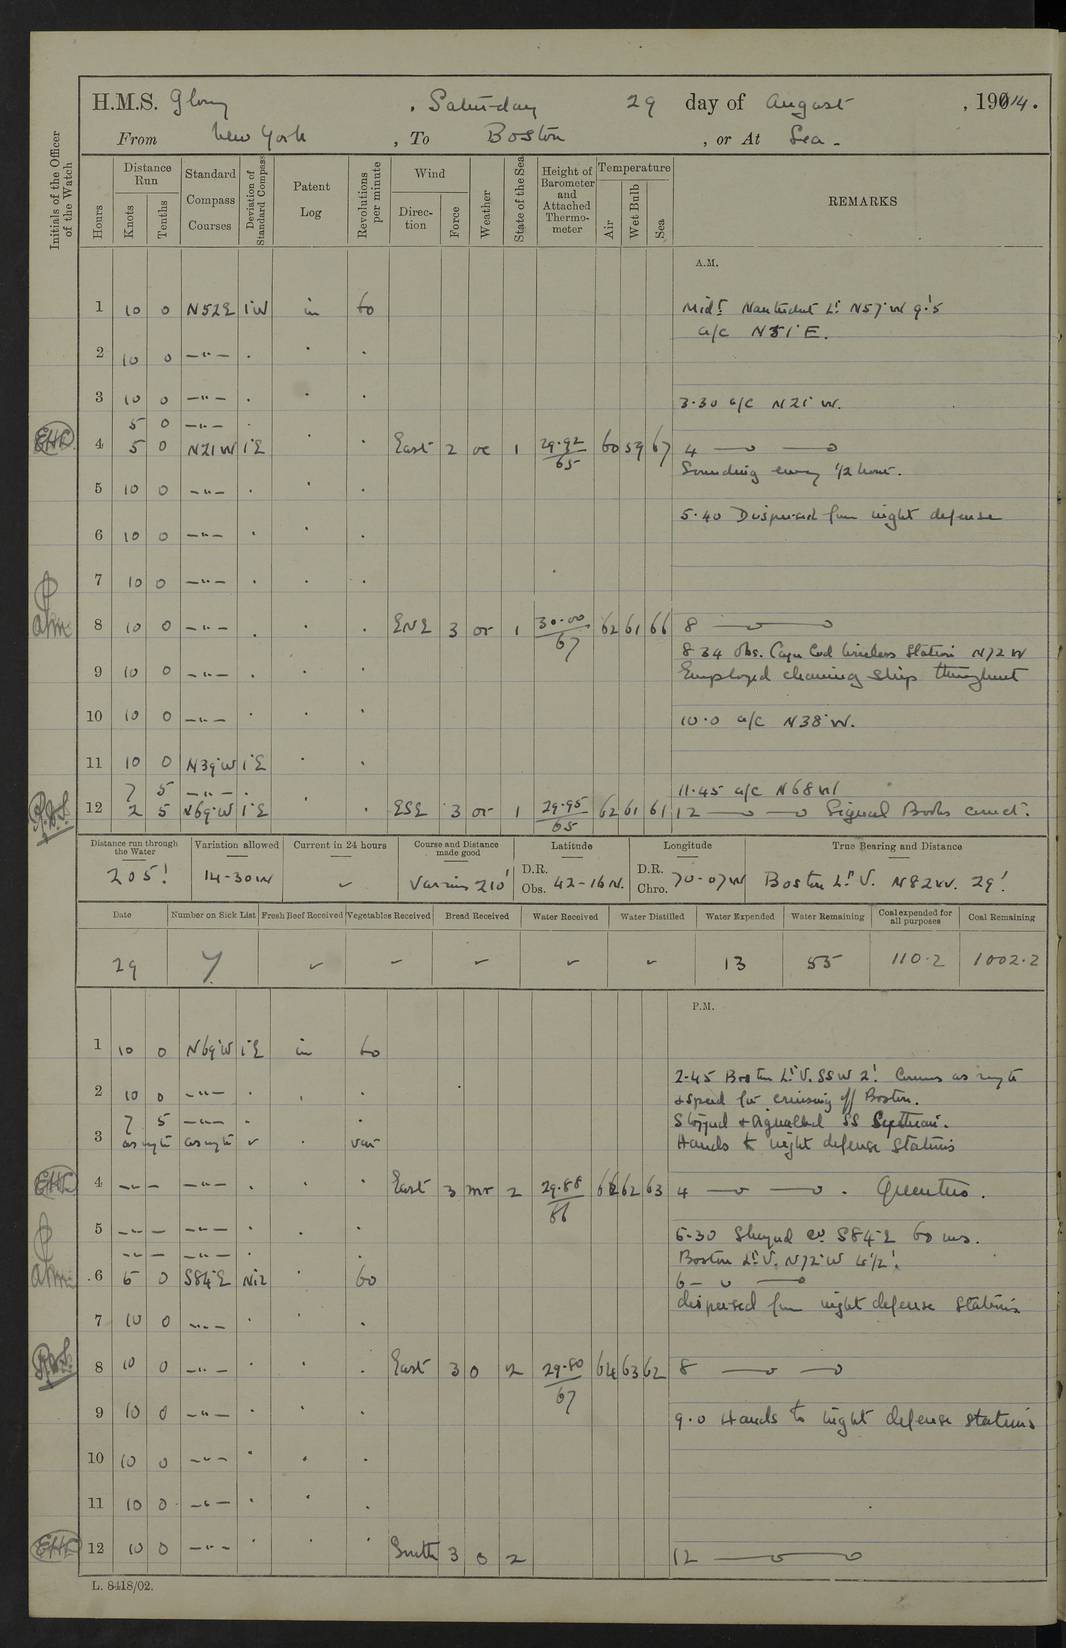 H.M.S. Glory , Saturday 29 day of August , 1914.
From New York , To Boston , or At Sea.
Initials of the Officer of the Watch
Hours
Distance Run
Knots
Tenths
Standard Compass Courses
Deviation of Standard Compass
Patent Log
Revolutions per minute
Wind
Direction
Force
Weather
State of the Sea
Height of Barometer and Attached Thermometer
Temperature
Air
Wet Bulb
Sea
REMARKS
A.M.
1 10 0 N52E 1°W in 60 Midt Nantucket Lt N57°W 9'.5
a/c N51°E.
2 10 0 —"— . . .
3 10 0 —"— . . . 3.30 a/c N21°W.
5 0 —"— .
EHL 4 5 0 N21W 1°E . . East 2 oc 1 29.92/65 60 59 67 4 —o —o
Sounding every 1/2 hour.
5 10 0 —"— . . .
5.40 Dispersed from night defense
6 10 0 —"— . . .
7 10 0 —"— . . .
8 10 0 —"— . . . ENE 3 or 1 30.00/67 62 61 66 8 —o —o
8 34 Obs. Cape Cod Wireless Station N72W
9 10 0 —"— . . . Employed cleaning ship throughout
10 10 0 —"— . . . 10.0 a/c N38°W.
11 10 0 N39°W 1°E . .
7 5 —"— . 11.45 a/c N68W
12 2 5 N69°W 1°E . . ESE 3 or 1 29.95/65 62 61 61 12 —o —o Signal Books correct.
Distance run through the Water
Variation allowed
Current in 24 hours
Course and Distance made good
Latitude
Longitude
True Bearing and Distance
205! 14-30W ✓ Various 210' D.R. Obs. 42-16N. D.R. Chro. 70-07W Boston Lt V. N82W. 29'.
Date
Number on Sick List
Fresh Beef Received
Vegetables Received
Bread Received
Water Received
Water Distilled
Water Expended
Water Remaining
Coal expended for all purposes
Coal Remaining
29 7 ✓ – ✓ – ✓ 13 55 110.2 1002.2
P.M.
1 10 0 N69°W 1°E in 60
2.45 Boston Lt V. SSW 2'. Course as reqte
2 10 0 —"— . . . & speed for cruising off Boston.
7 5 —"— . Stopped & signalled SS
3 as reqte as reqte ✓ . var Hands to night defense Stations
EHL 4 —"— —"— . . . East 3 mr 2 29.88/66 62 63 4 —o —o .
5 —"— —"— . . . 5-30 Shaped co. S84°E 60 revs.
—"— —"— . Boston Lt V. N72°W 4 1/2'.
6 5 0 S84°E Nil . 60 6 —o —o
dispersed from night defense Stations
7 10 0 —"— . . .
8 10 0 —"— . . . East 3 0 2 29.80/67 64 63 62 8 —o —o
9 10 0 —"— . . . 9.0 Hands to night defense stations
10 10 0 —"— . . .
11 10 0 —"— . . .
EHL 12 10 0 —"— . . . South 3 0 2 12 —o —o
L. 8418/02.